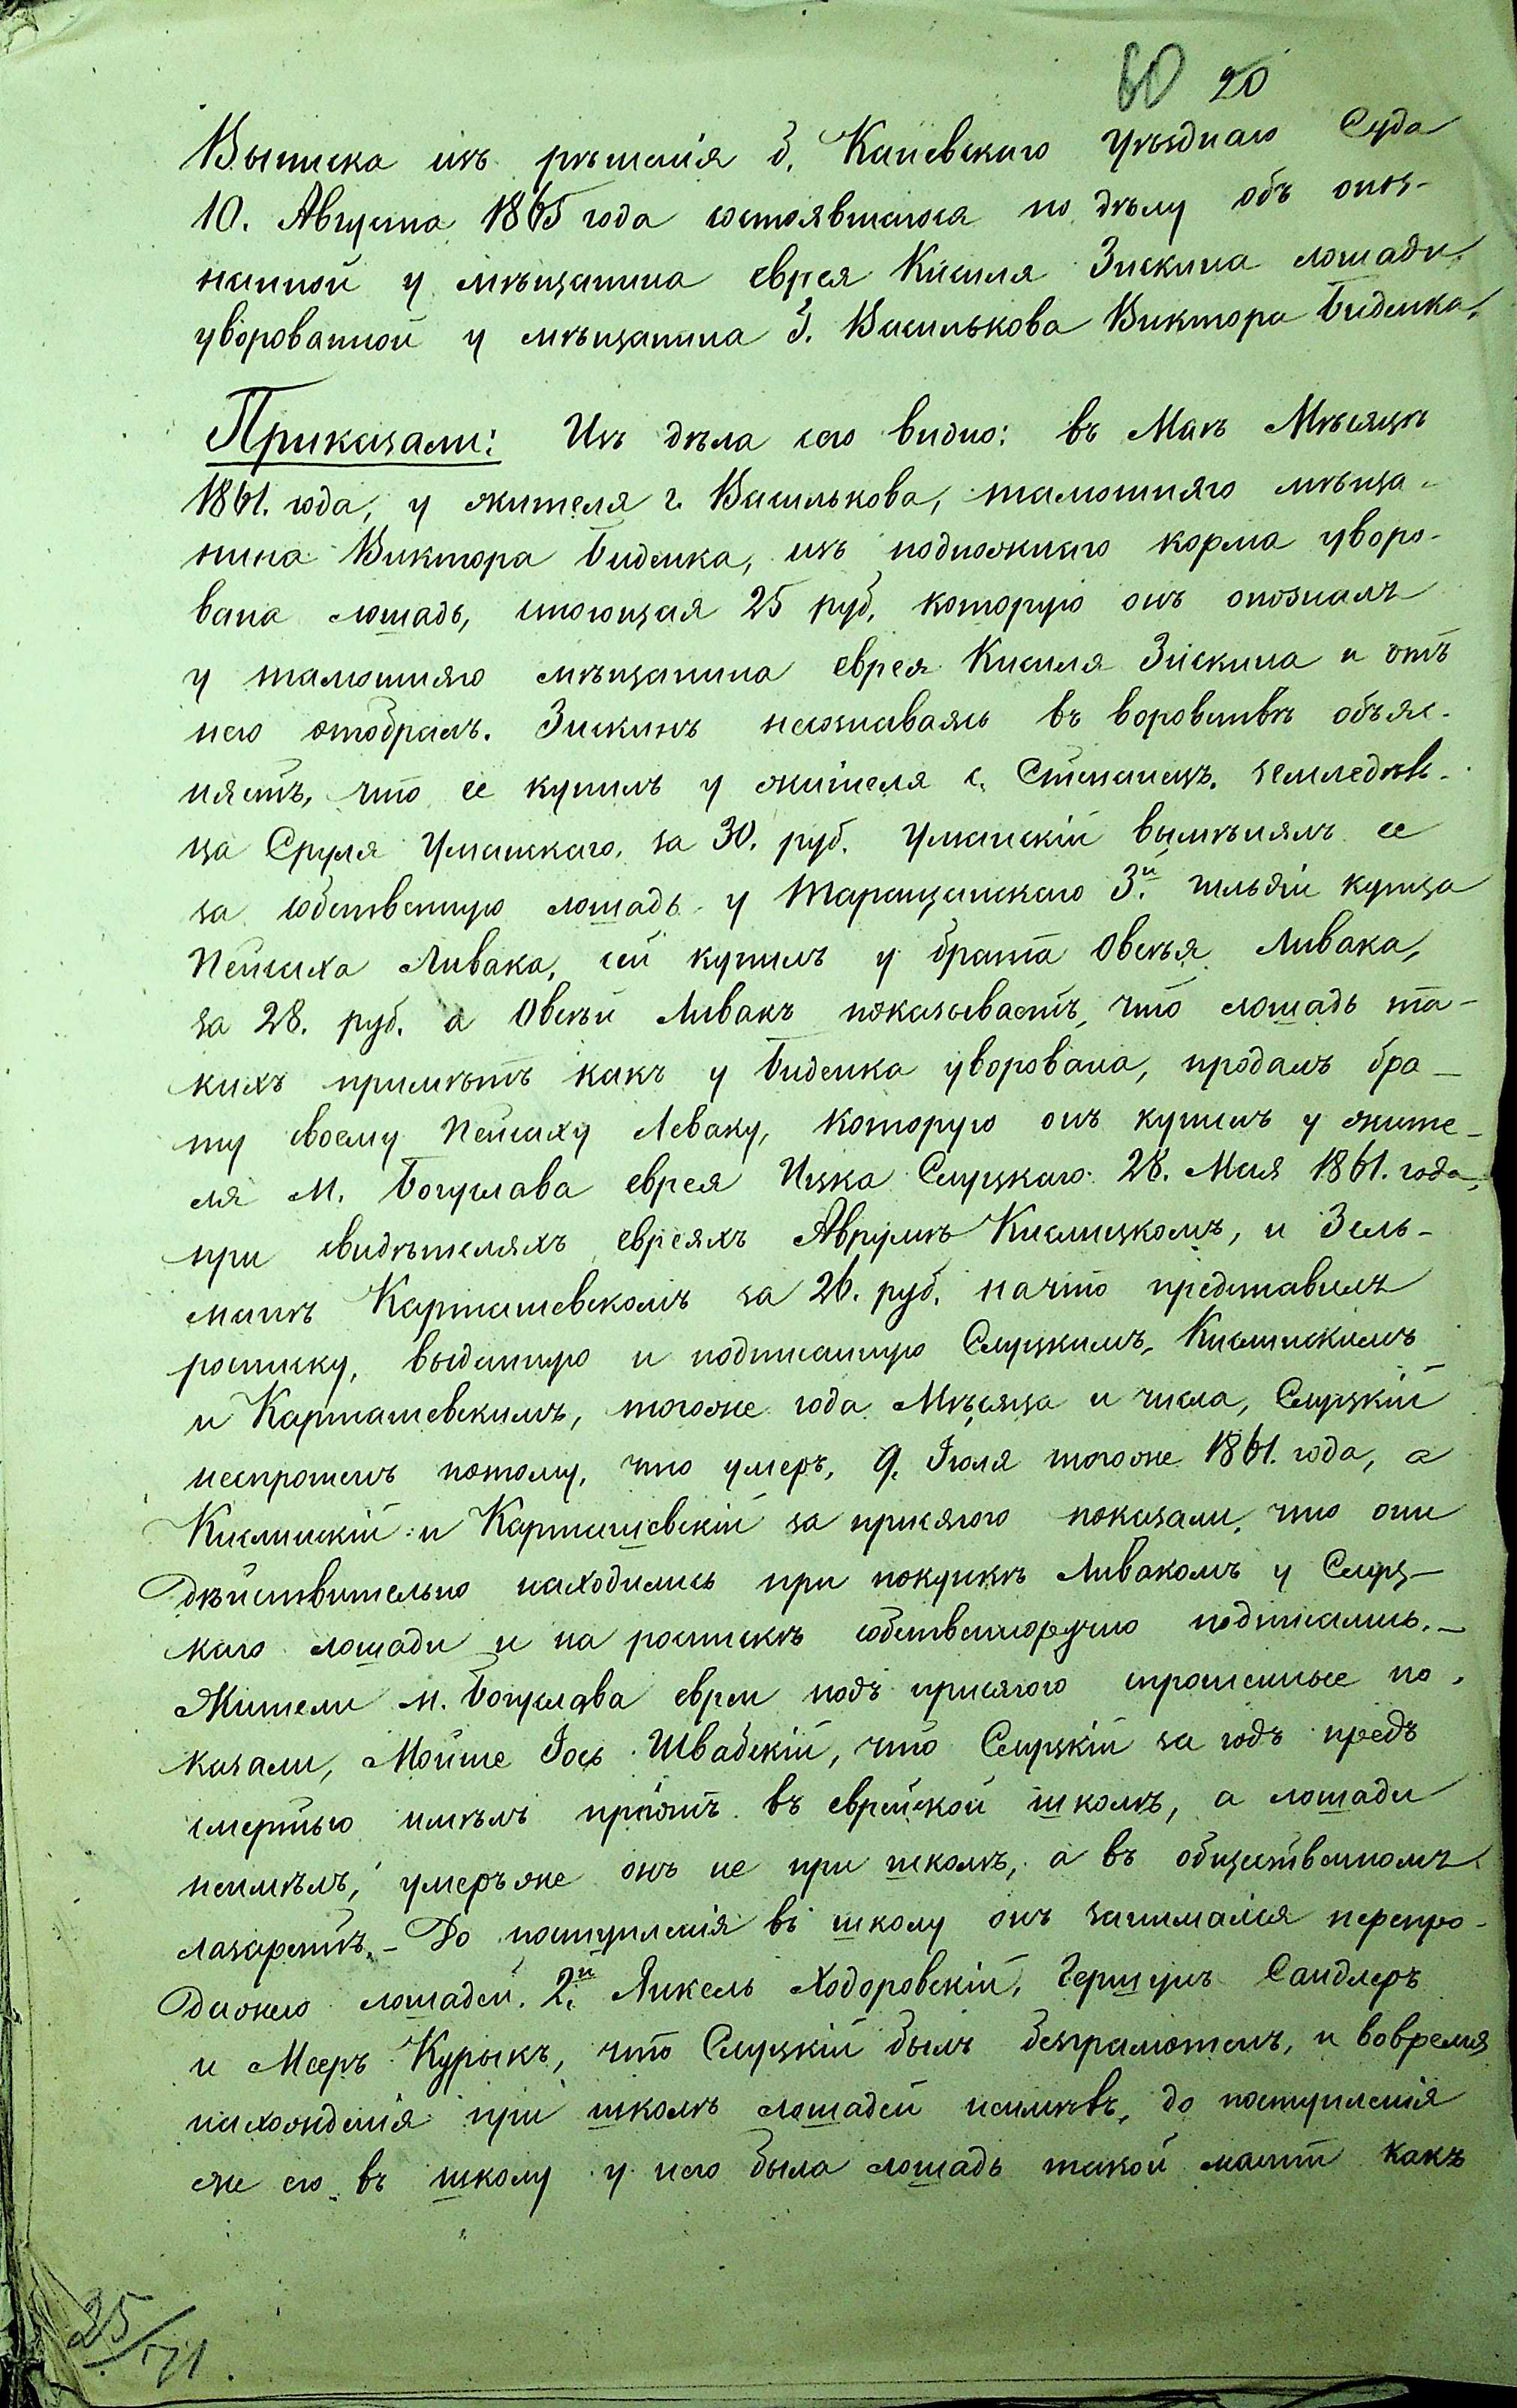 60 20
Выписка изъ рѣшенія б. Каневскаго Уѣзднаго Суда
10. Августа 1865 года состоявшагося по дѣлу объ опоз-
нанной у мѣщанина еврея Кисиля Зискина лошади
уворованной у мѣщанина г. Василькова Виктора Биденка.
Приказали: Изъ дѣла сего видно: въ Маѣ Мѣсяцѣ
1861. года, у жителя г. Василькова, тамошняго мѣща-
нина Виктора Биденка, изъ подножнаго корма уворо-
вана лошадь, стоющая 25 руб. которую онъ опозналъ
у тамошняго мѣщанина еврея Кисиля Зискина и отъ
него отобралъ. Зискинъ несознаваясь въ воровствѣ объяс-
няетъ, что ее купилъ у жителя с. Степанецъ, земледѣль-
ца Сруля Уманскаго, за 30. руб. Уманскій вымѣнялъ ее
за собственную лошадь у Таращанскаго 3.й гильдіи купца
Пейсаха Ливака, сей купилъ у брата Овсѣя Ливака,
за 28. руб. а Овсѣй Ливакъ показываетъ, что лошадь та-
кихъ примѣтъ какъ у Биденка уворована, продалъ бра-
ту своему Пейсаху Леваку, которую онъ купилъ у жите-
ля м. Богуслава еврея Ицка Слуцкаго 28. Мая 1861. года,
при свидѣтеляхъ евреяхъ Аврумѣ Кислицкомъ, и Зель-
манѣ Карташевскомъ за 26. руб. начто представилъ
росписку, выданную и подписанную Слуцкимъ, Кислинскимъ
и Карташевскимъ, тогоже года Мѣсяца и числа, Слуцкій
неспрошенъ потому, что умеръ, 9. Іюля тогоже 1861. года, а
Кислинскій и Карташевскій за присягою показали, что они
дѣйствительно находились при покупкѣ Ливакомъ у Слуц-
каго лошади и на роспискѣ собственноручно подписались.-
Жители м. Богуслава евреи подъ присягою спрошенные по-
казали, Мойше Іось Швабскій, что Слуцкій за годъ предъ
смертью имѣлъ пріютъ въ еврейской школѣ, а лошади
неимѣлъ, умеръже онъ не при школѣ, а въ общественномъ
лазаретѣ.- До поступленія въ школу онъ занимался перепро-
дажею лошадей. 2.й Янкель Ходоровскій, Гершунъ Сандлеръ
и Мееръ Курыкъ, что Слуцкій былъ безграмотенъ, и вовремя
нахожденія при школѣ лошадей неимѣвъ, до поступленія
же его въ школу у него была лошадь такой масти какъ
25/VI.